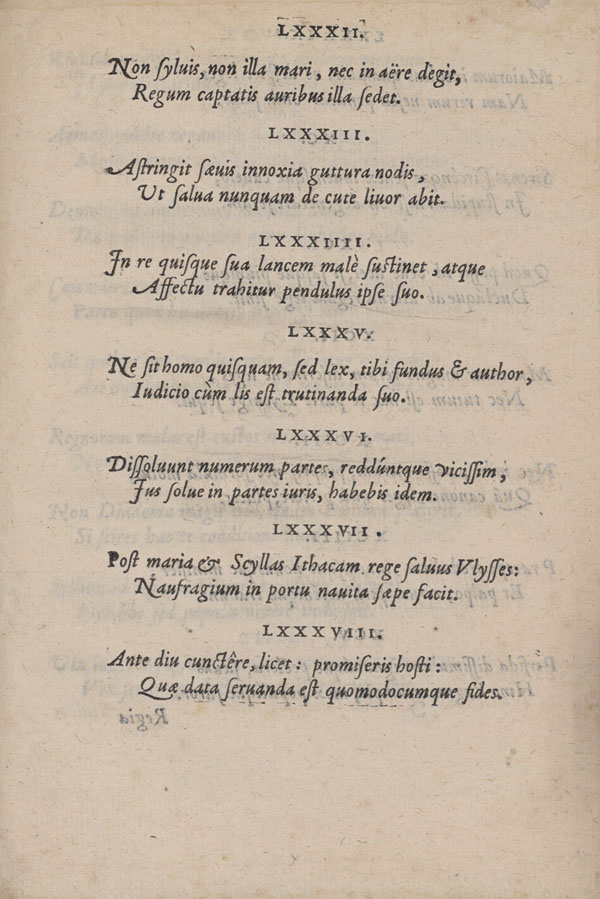 LXXXII.
Non ſyluis, non illa mari, nec in aëre degit,
Regum captatis auribus illa ſedet.
LXXXIII.
Aſtringit ſæuis innoxia guttura nodis,
Ut ſalua nunquam de cute liuor abit.
LXXXIIII.
In re quiſque ſua lancem malè ſuſtinet, atque
Affectu trahitur pendulus ipſe ſuo.
LXXXV.
Ne ſit homo quiſquam, ſed lex, tibi fundus & author,
Iudicio cùm lis eſt trutinanda ſuo.
LXXXVI.
Diſſoluunt numerum partes, reddúntque viciſſim,
Jus ſolue in partes iuris, habebis idem.
LXXXVII.
Poſt maria & Scyllas Ithacam rege ſaluus Vlyſſes:
Naufragium in portu nauita ſæpe facit.
LXXXVIII.
Ante diu cunctêre, licet: promiſeris hoſti:
Quæ data ſeruanda eſt quomodocumque fides.
Regia